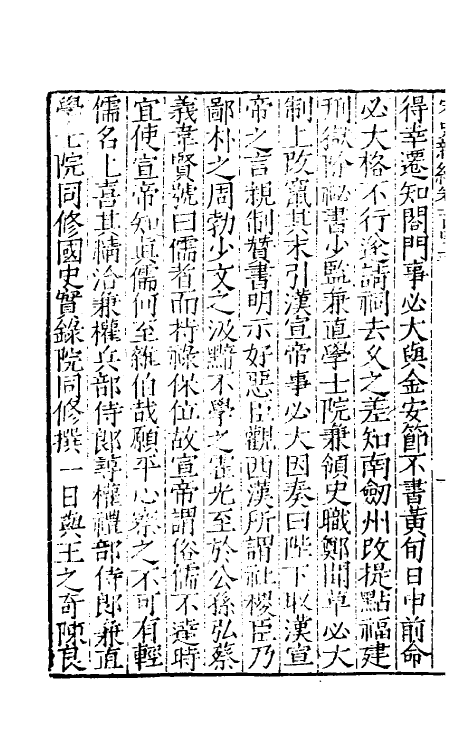 得幸遷知閤門事必大與金安節不書黃旬日申前命
必大格不行遂請祠去乆之差知南劒州改提點福建
刑獄除祕書少監兼直學士院兼領史職鄭聞草必大
制上改竄其末引漢宣帝事必大因奏曰陛下取漢宣
帝之言親制贊書明示好惡臣觀西漢所謂社稷臣乃
鄙朴之周勃少文之汲黯不學之霍光至於公孫弘蔡
義韋賢號曰儒者而持祿保位故宣帝謂俗儒不達時
宜使宣帝知眞儒何至雜伯哉願平心察之不可有輕
儒名上喜其精洽兼權兵部侍郎尋權禮部侍郎兼直
學士院同修國史實錄院同修撰一日與王之奇陳良